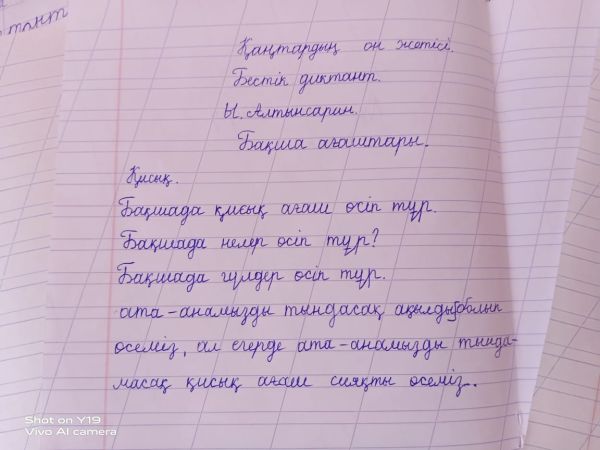 тант
Қаңтардың он жетісі.
Бестік диктант.
Ы. Алтынсарин.
Бақша ағаштары.
Қисық.
Бақшада қисық ағаш өсіп тұр.
Бақшада нелер өсіп тұр?
Бақшада гүлдер өсіп тұр.
ата-анамызды тындасақ ақылды болып
өсеміз, ал егерде ата-анамызды тында-
масақ қисық ағаш сияқты өсеміз.
Shot on Y19
Vivo AI camera